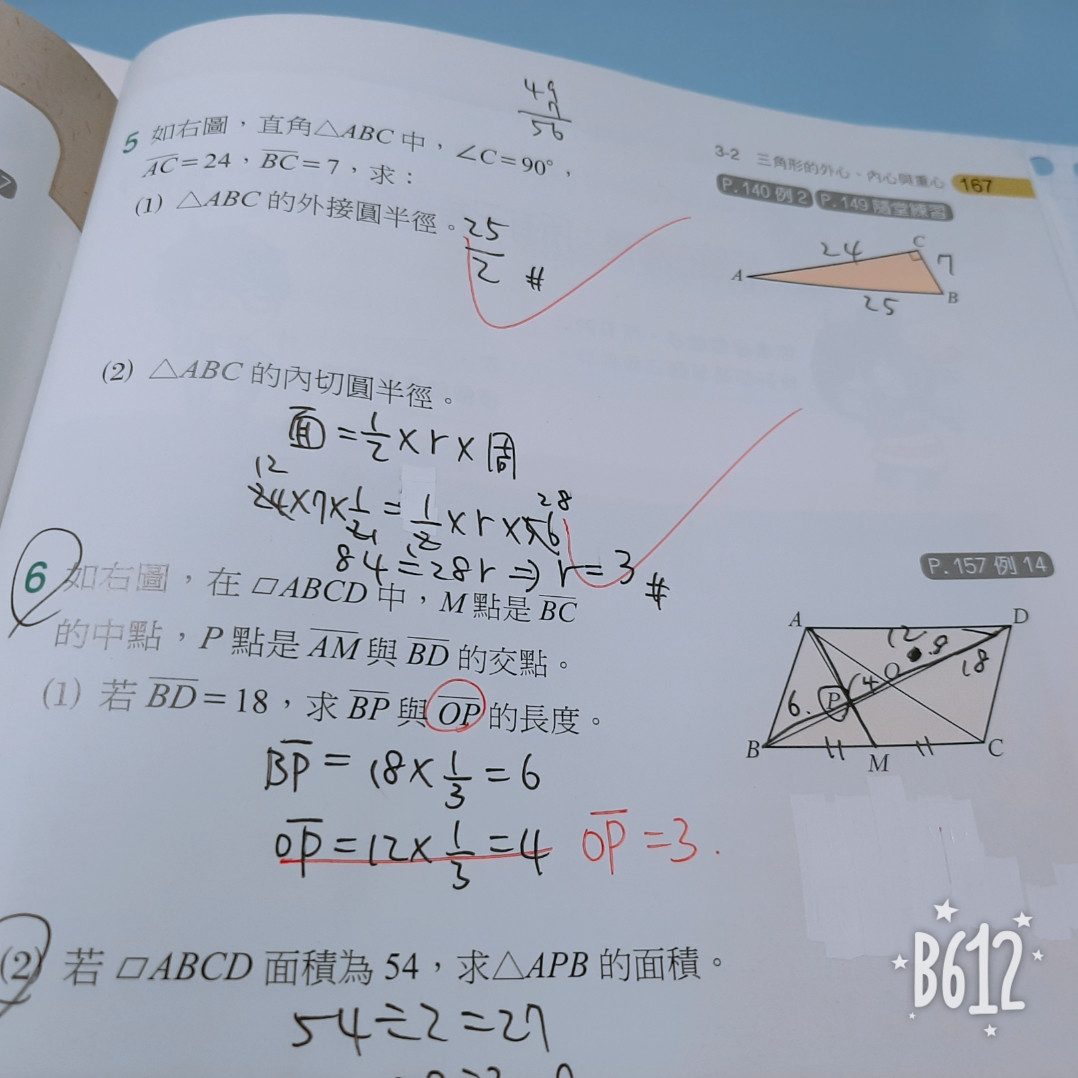 49
7
56
5 如右圖，直角△ABC 中，∠C=90°，
AC=24，BC=7，求：
(1) △ABC 的外接圓半徑。25/2 #
3-2 三角形的外心、內心與重心 167
P.140 例2 P.149 隨堂練習
24
C
7
A
25
B
(2) △ABC 的內切圓半徑。
面=1/2×r×周
12 28
24×7×1/2=1/2×r×56
84=28r⇒r=3 #
6 如右圖，在▱ABCD 中，M 點是 BC
的中點，P 點是 AM 與 BD 的交點。
(1) 若 BD=18，求 BP 與 OP 的長度。
BP=18×1/3=6
OP=12×1/3=4 OP=3.
P.157 例14
A D
12 9
O 18
6. P 4
B M C
(2) 若▱ABCD 面積為 54，求△APB 的面積。
54÷2=27
B612